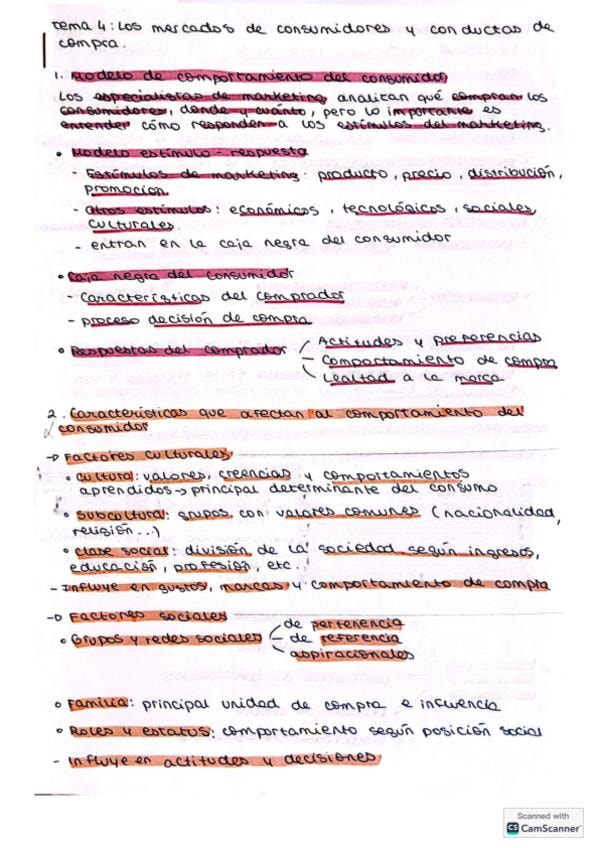 Tema 4: Los mercados de consumidores y conductas de
compra.
1. Modelo de comportamiento del consumidor
Los especialistas de marketing analizan qué compran los
consumidores, donde y cuánto, pero lo importante es
entender cómo responden a los estímulos del marketing.
• Modelo estímulo - respuesta
- Estímulos de marketing: producto, precio, distribución,
promoción.
- Otros estímulos: económicos, tecnológicos, sociales,
culturales.
- entran en la caja negra del consumidor
• Caja negra del consumidor
- Características del comprador
- proceso decisión de compra
• Respuestas del comprador / Actitudes y preferencias
- Comportamiento de compra
\ Lealtad a la marca
2. Características que afectan al comportamiento del
consumidor
→ Factores culturales
• Cultura: valores, creencias y comportamientos
aprendidos → principal determinante del consumo
• Subcultura: grupos con valores comunes (nacionalidad,
religión...)
• Clase social: división de la sociedad según ingresos,
educación, profesión, etc.
- Influye en gustos, marcas y comportamiento de compra
→ Factores sociales
• Grupos y redes sociales / de pertenencia
- de referencia
\ aspiracionales
• Familia: principal unidad de compra e influencia
• Roles y estatus: comportamiento según posición social
- Influye en actitudes y decisiones
Scanned with
CS CamScanner